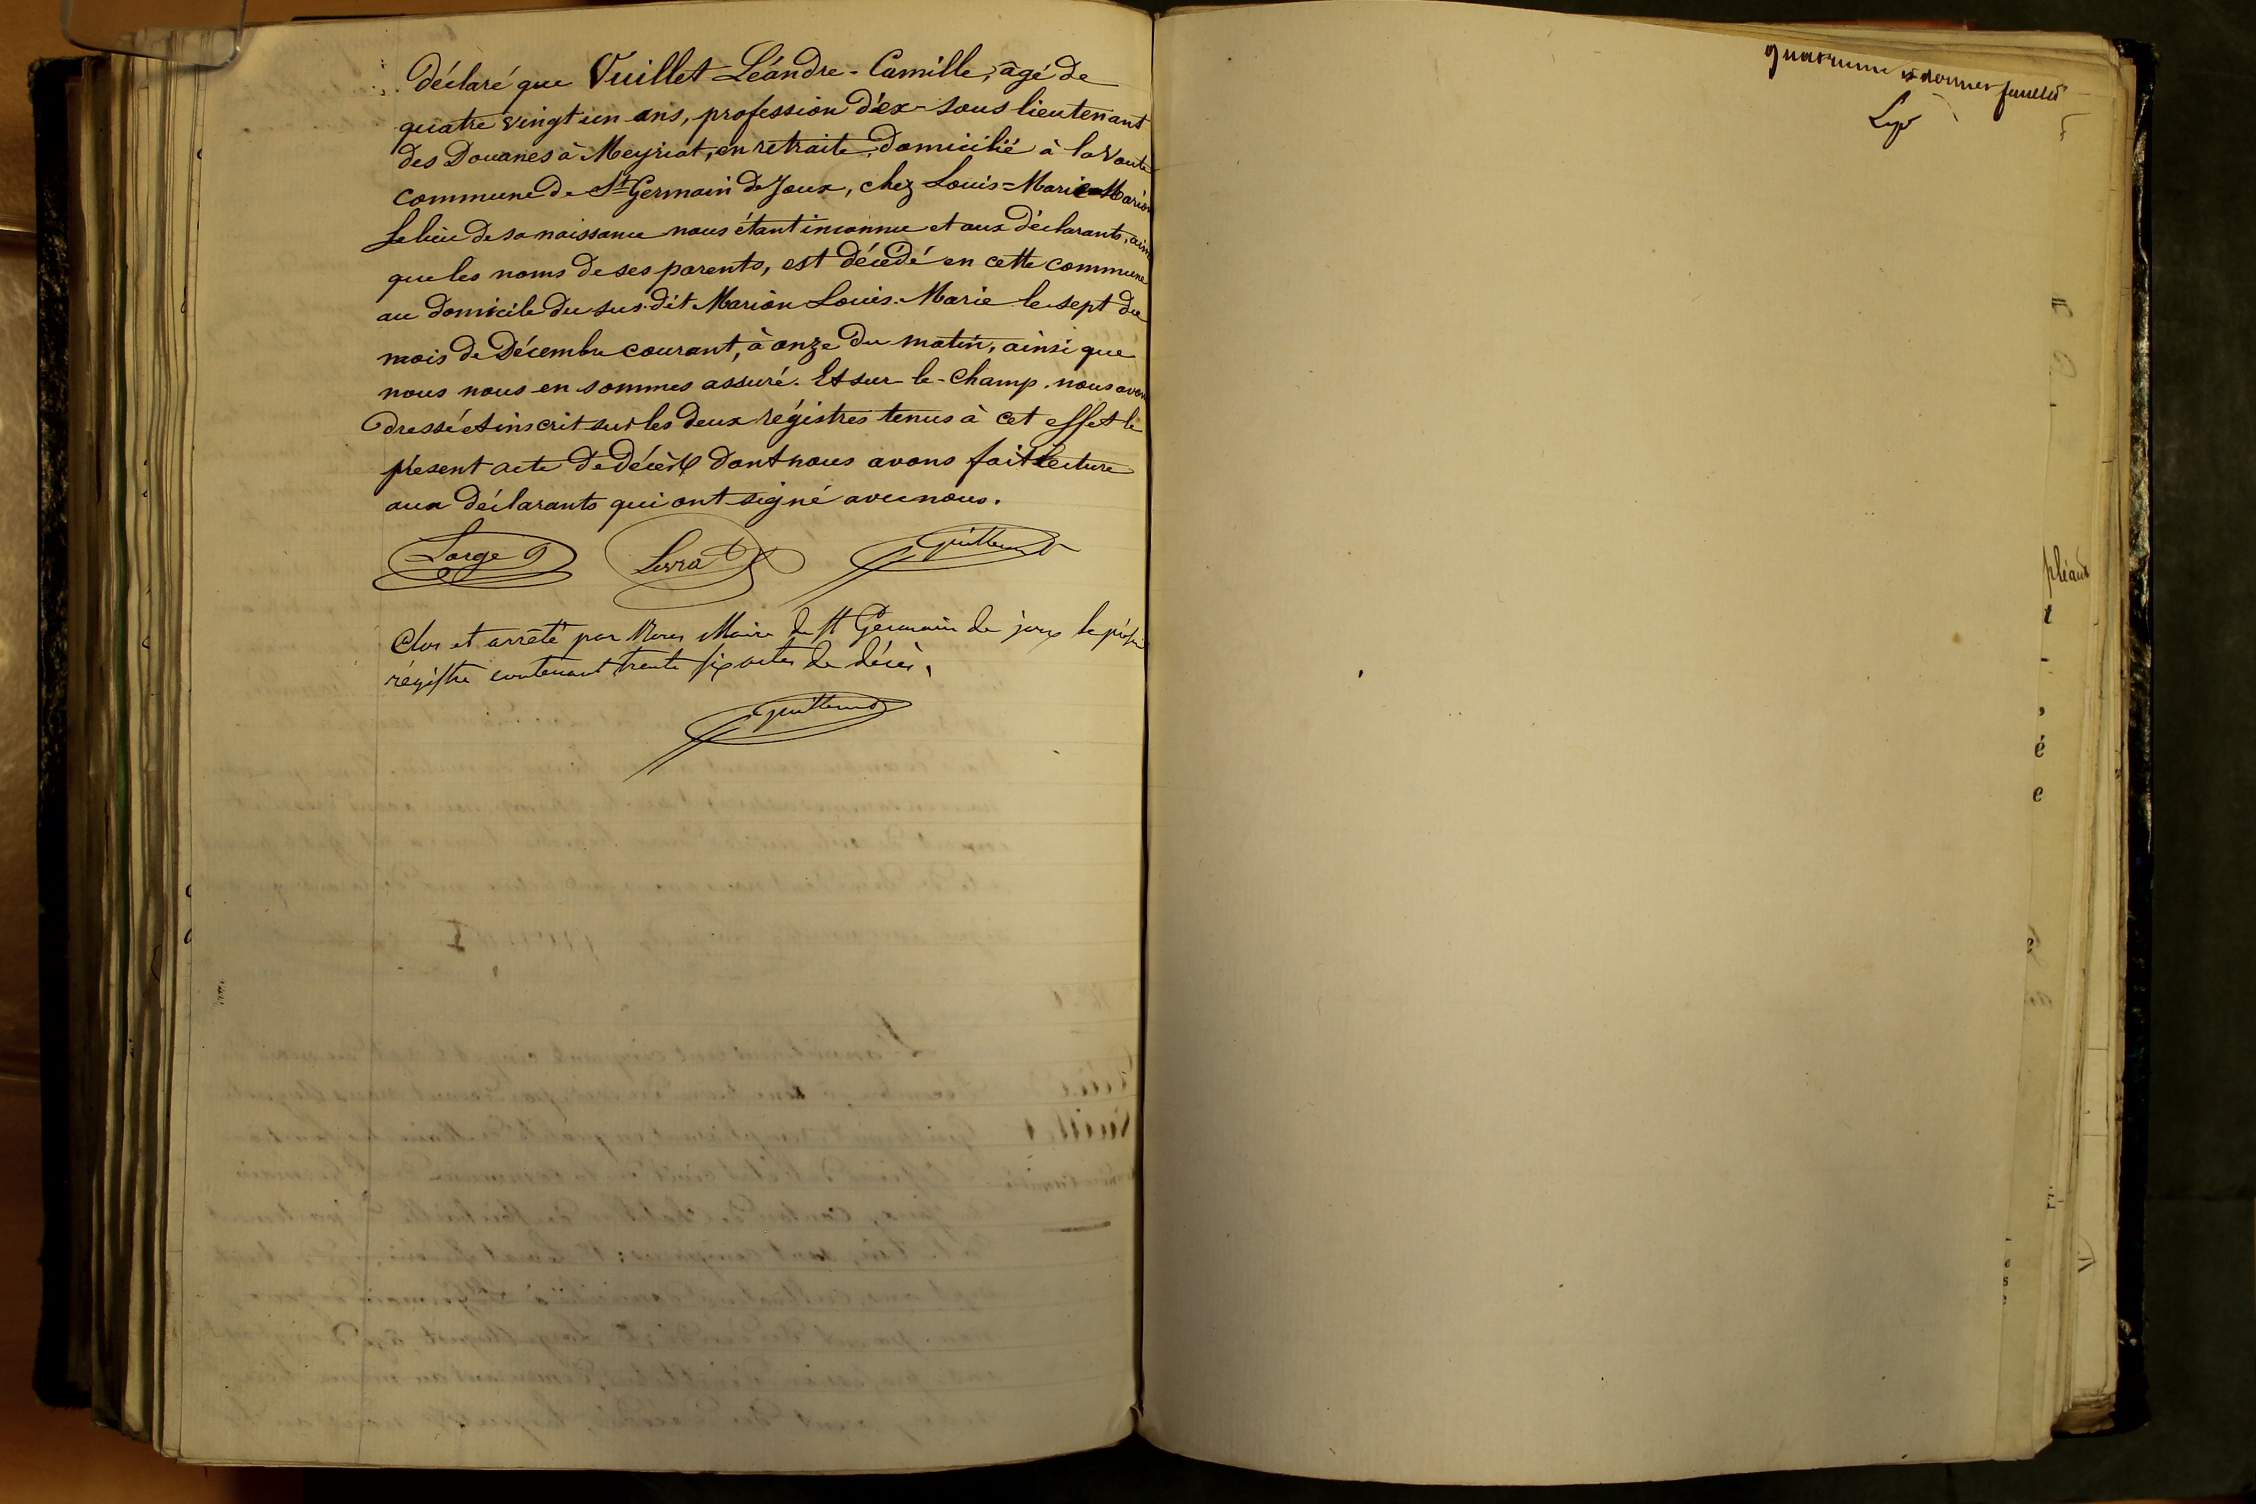 déclaré que Vuillet Léandre-Camille, âgé de
quatre vingt un ans, profession d'ex-sous lieutenant
des Douanes à Meyriat, en retraite, domicilié à la Voute
commune de St Germain de Joux, chez Louis=Marie Marion
le lieu de sa naissance nous étant inconnu et aux déclarants, ainsi
que les noms de ses parents, est décédé en cette commune
au domicile du sus-dit Marion Louis-Marie le sept du
mois de Décembre courant, à onze du matin, ainsi que
nous nous en sommes assuré. Et sur le-champ nous avons
dressé et inscrit sur les deux régistres tenus à cet effet le
présent acte de décès dont nous avons fait lecture
aux déclarants qui ont signé avec nous.
Lorge Livrat Guillermet
Clos et arrêté par Nous Maire de St Germain de joux le présent
régistre contenant trente six actes de décès.
Guillermet
dernier feuillet
t
é
e